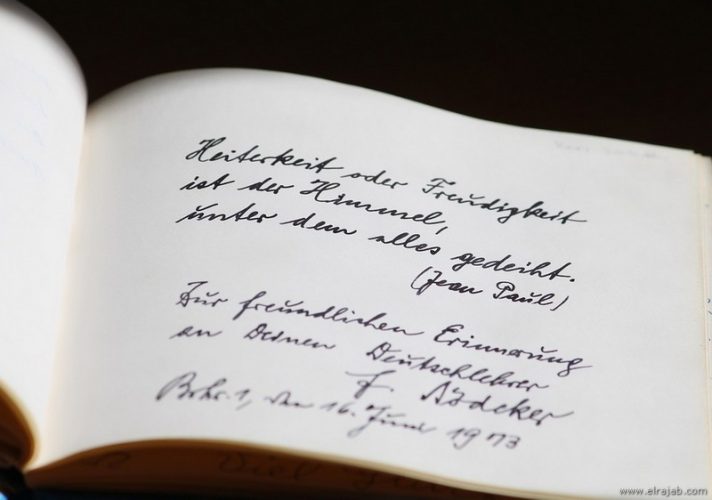 Heiterkeit oder Freudigkeit
ist der Himmel,
unter dem alles gedeiht.
(Jean Paul)
Zur freundlichen Erinnerung
an Deinen Deutschlehrer
F.
den 16. Juni 1973
www.elrajab.com